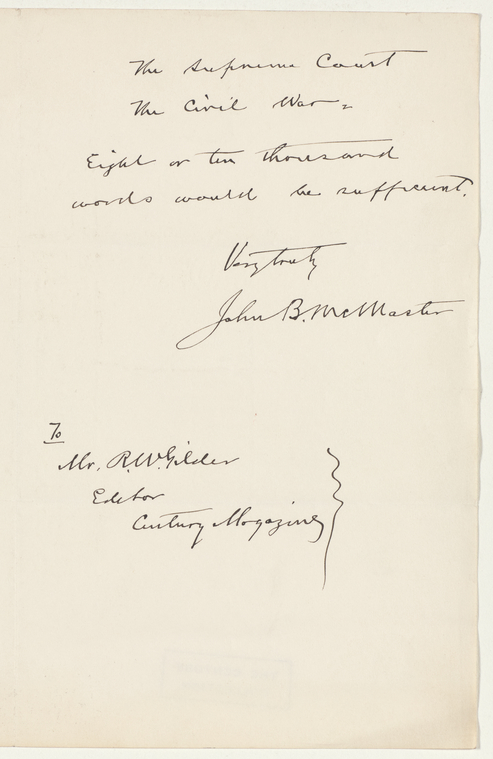 The Supreme Court
The Civil War =
Eight or ten thousand
words would be sufficient.
Very truly
John B. McMaster
To
Mr. R. W. Gilder
Editor
Century Magazine